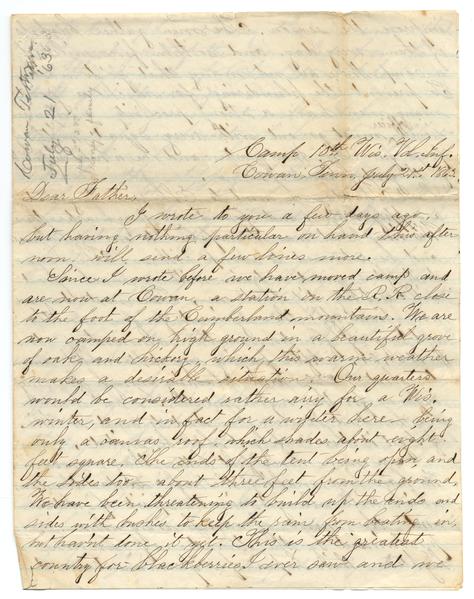 Cowan Tenn
July 21 63
Camp 10th Wis. Vol. Inf.
Cowan, Tenn, July 21st 1863
Dear Father,
I wrote to you a few days ago,
but having nothing particular on hand this after
noon will send a few lines more.
Since I wrote before we have moved camp and
are now at Cowan, a station on the R.R. close
to the foot of the Cumberland mountains. We are
now camped on high ground in a beautiful grove
of oak and hickory, which this warm weather
makes a desirable situation. Our quarters
would be considered rather airy for a Wis.
winter, and in fact for a winter here being
only a canvas roof which shades about eight
feet square. The ends of the tent being open, and
the sides too about three feet from the ground,
We have been threatening to build up the ends and
sides with bushes to keep the rain from beating in,
but havnt done it yet. This is the greatest
country for blackberries I ever saw and we